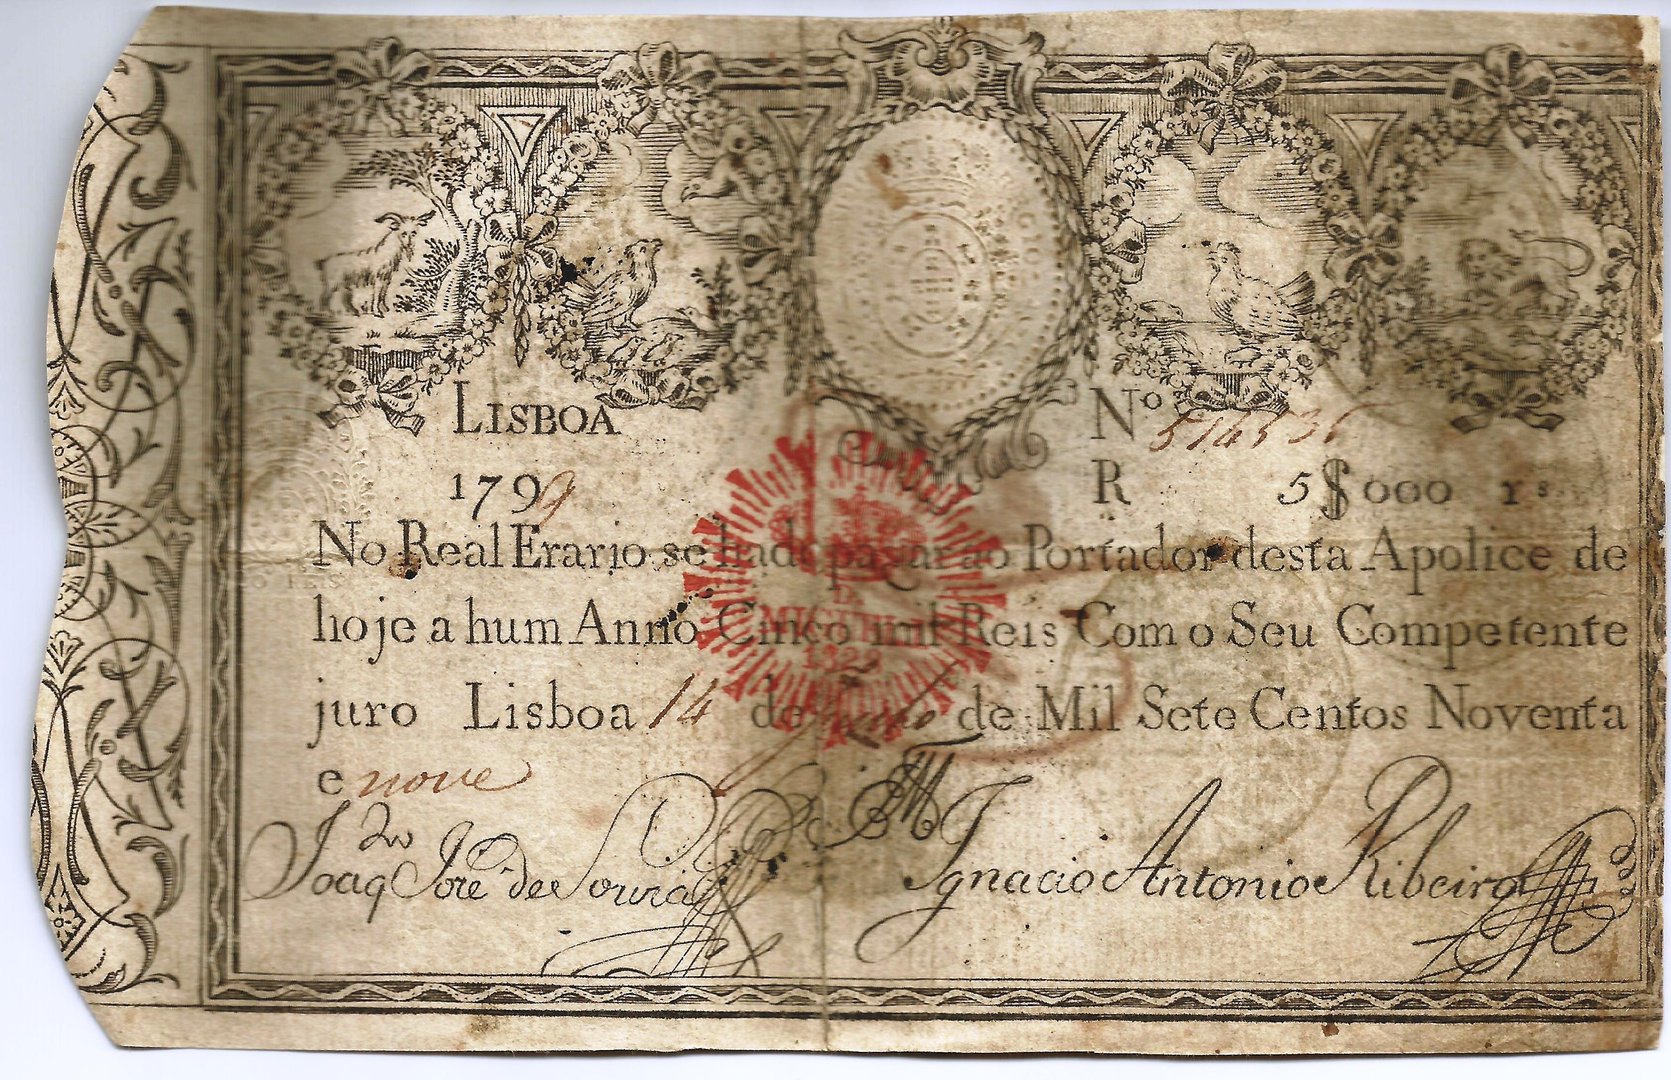 LISBOA
Nº 514536
1799
R 5$000 rs
No Real Erario se hade pagar ao Portador desta Apolice de
hoje a hum Anno Cinco mil Reis Com o Seu Competente
juro Lisboa 14 de de Mil Sete Centos Noventa
e nove
Joaq José de Souza
Ignacio Antonio Ribeiro
MIGUEL